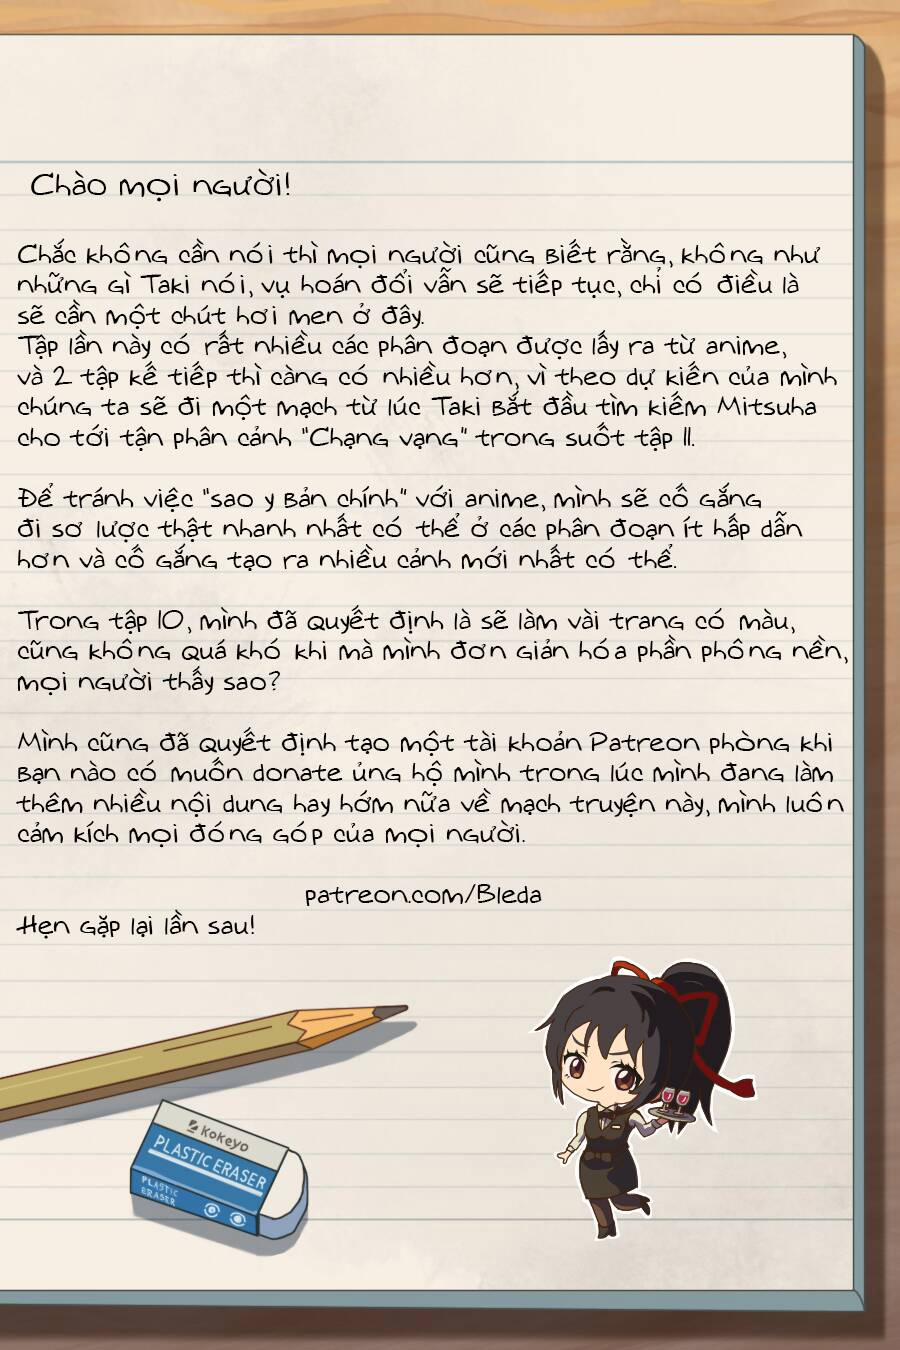 Chào mọi người!
Chắc không cần nói thì mọi người cũng biết rằng, không như
những gì Taki nói, vụ hoán đổi vẫn sẽ tiếp tục, chỉ có điều là
sẽ cần một chút hơi men ở đây.
Tập lần này có rất nhiều các phân đoạn được lấy ra từ anime,
và 2 tập kế tiếp thì càng có nhiều hơn, vì theo dự kiến của mình
chúng ta sẽ đi một mạch từ lúc Taki bắt đầu tìm kiếm Mitsuha
cho tới tận phân cảnh "Chạng vạng" trong suốt tập 11.
Để tránh việc "sao y bản chính" với anime, mình sẽ cố gắng
đi sơ lược thật nhanh nhất có thể ở các phân đoạn ít hấp dẫn
hơn và cố gắng tạo ra nhiều cảnh mới nhất có thể.
Trong tập 10, mình đã quyết định là sẽ làm vài trang có màu,
cũng không quá khó khi mà mình đơn giản hóa phần phông nền,
mọi người thấy sao?
Mình cũng đã quyết định tạo một tài khoản Patreon phòng khi
bạn nào có muốn donate ủng hộ mình trong lúc mình đang làm
thêm nhiều nội dung hay hớm nữa về mạch truyện này, mình luôn
cảm kích mọi đóng góp của mọi người.
patreon.com/Bleda
Hẹn gặp lại lần sau!
KoKeyo
PLASTIC ERASER
PLASTIC
ERASER